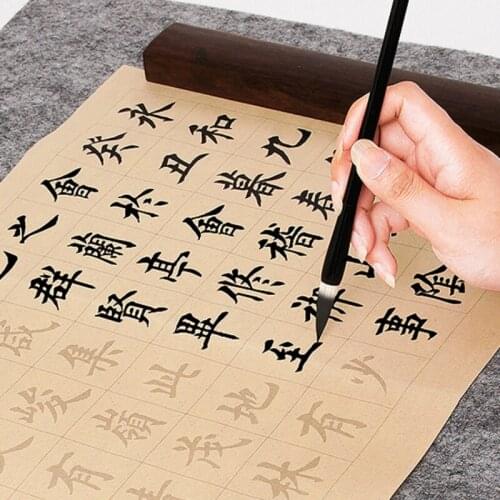 永和九
癸丑暮春
會於會稽陰
之蘭亭修禊事
也群賢畢至少
咸集此地有
峻嶺茂林